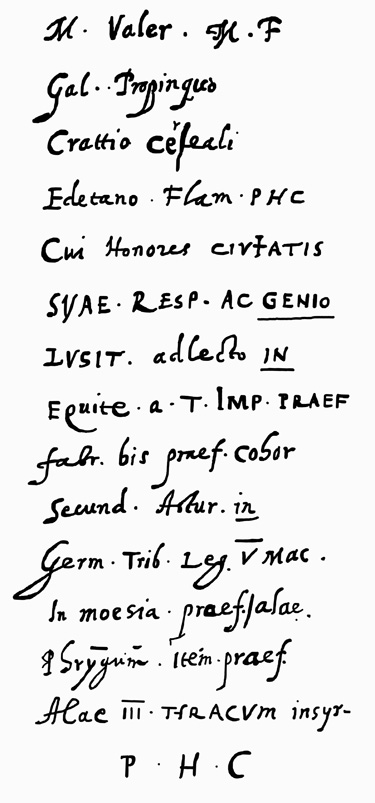 M. Valer. M. F
Gal. Propinquo
Crattio cereali
Edetano. Flam. PHC
Cui Honores CIVTATIS
SVAE. RESP. AC GENIO
LVSIT. adlecto IN
Equite. a. T. IMP. PRAEF
fabr. bis praef. cohor
Secund. Astur. in
Germ. Trib. Leg. V Mac.
In moesia. praef. alae.
Phrygum. item. praef.
Alae III. THRACVM insyr-
P. H. C